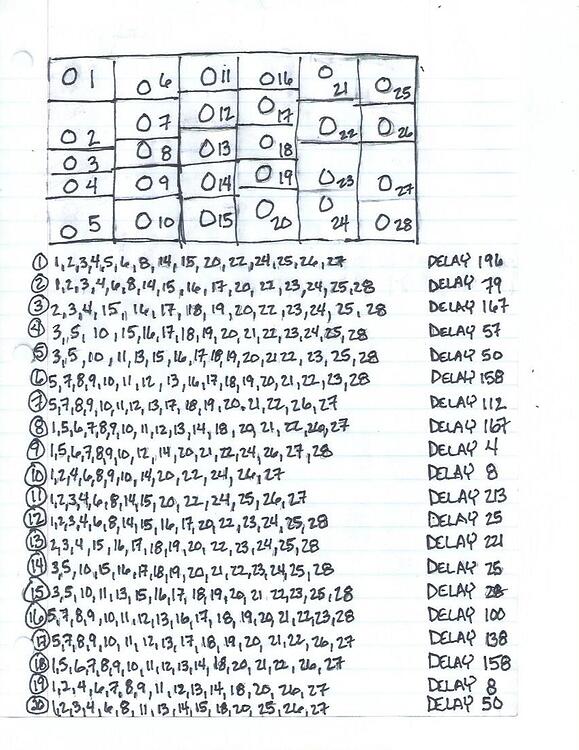 O 1 O 6 O 11 O 16 O 21 O 25
O 2 O 7 O 12 O 17 O 22 O 26
O 3 O 8 O 13 O 18
O 4 O 9 O 14 O 19 O 23 O 27
O 5 O 10 O 15 O 20 O 24 O 28
① 1,2,3,4,5,6,8,14,15,20,22,24,25,26,27 DELAY 196
② 1,2,3,4,6,8,14,15,16,17,20,22,23,24,25,28 DELAY 79
③ 2,3,4,15,16,17,18,19,20,22,23,24,25,28 DELAY 167
④ 3,5,10,15,16,17,18,19,20,21,22,23,24,25,28 DELAY 57
⑤ 3,5,10,11,13,15,16,17,18,19,20,21,22,23,25,28 DELAY 50
⑥ 5,7,8,9,10,11,12,13,16,17,18,19,20,21,22,23,28 DELAY 158
⑦ 5,7,8,9,10,11,12,13,17,18,19,20,21,22,26,27 DELAY 112
⑧ 1,5,6,7,8,9,10,11,12,13,14,18,20,21,22,26,27 DELAY 167
⑨ 1,5,6,7,8,9,10,12,14,20,21,22,24,26,27,28 DELAY 4
⑩ 1,2,4,6,8,9,10,14,20,22,24,26,27 DELAY 8
⑪ 1,2,3,4,6,8,14,15,20,22,24,25,26,27 DELAY 213
⑫ 1,2,3,4,6,8,14,15,16,17,20,22,23,24,25,28 DELAY 25
⑬ 2,3,4,15,16,17,18,19,20,22,23,24,25,28 DELAY 221
⑭ 3,5,10,15,16,17,18,19,20,21,22,23,24,25,28 DELAY 25
⑮ 3,5,10,11,13,15,16,17,18,19,20,21,22,23,25,28 DELAY
⑯ 5,7,8,9,10,11,12,13,16,17,18,19,20,21,22,23,28 DELAY 100
⑰ 5,7,8,9,10,11,12,13,17,18,19,20,21,22,26,27 DELAY 138
⑱ 1,5,6,7,8,9,10,11,12,13,14,18,20,21,22,26,27 DELAY 158
⑲ 1,2,4,6,7,8,9,11,12,13,14,18,20,26,27 DELAY 8
⑳ 1,2,3,4,6,8,11,13,14,15,18,20,25,26,27 DELAY 50